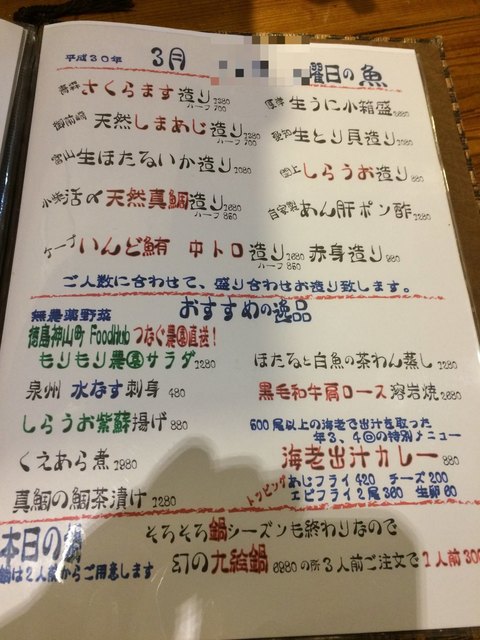 平成30年 3月 曜日の魚
青森 さくらます造り 1280 ハーフ 700
御前崎 天然しまあじ造り 1280 ハーフ 700
富山 生ほたるいか造り 1080
活〆天然真鯛造り 1280 ハーフ 650
ケープ いんど鮪 中トロ造り ハーフ 850 赤身造り 980
厚岸 生うに小箱盛
愛知 生とり貝造り
しらうお造り 880
自家製 あん肝ポン酢
ご人数に合わせて、盛り合わせお造り致します。
おすすめの逸品
無農薬野菜
徳島神山町 FoodHub つなぐ農園直送！
もりもり農園サラダ 1280
泉州 水なす刺身 480
しらうお紫蘇揚げ 880
くえあら煮 1980
真鯛の鯛茶漬け 1280
ほたると白魚の茶わん蒸し 1280
黒毛和牛肩ロース溶岩焼 2680
500尾以上の海老で出汁を取った
年3、4回の特別メニュー
海老出汁カレー 880
トッピング あじフライ 420 チーズ 200
エビフライ2尾 360 生卵 60
本日の鍋
鍋は2人前からご用意します
そろそろ鍋シーズンも終わりなので
幻の九絵鍋 6980 の所3人前ご注文で1人前